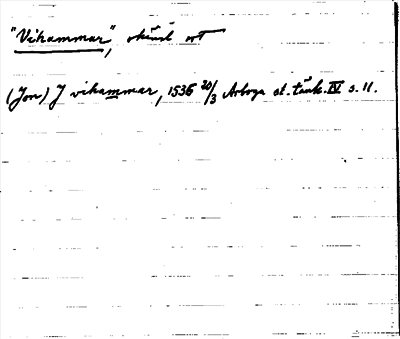 "Vikammar", okänd ort
(Jon) J vikammar, 1536 20/3 Arboga st. tänk. IV s. 11.